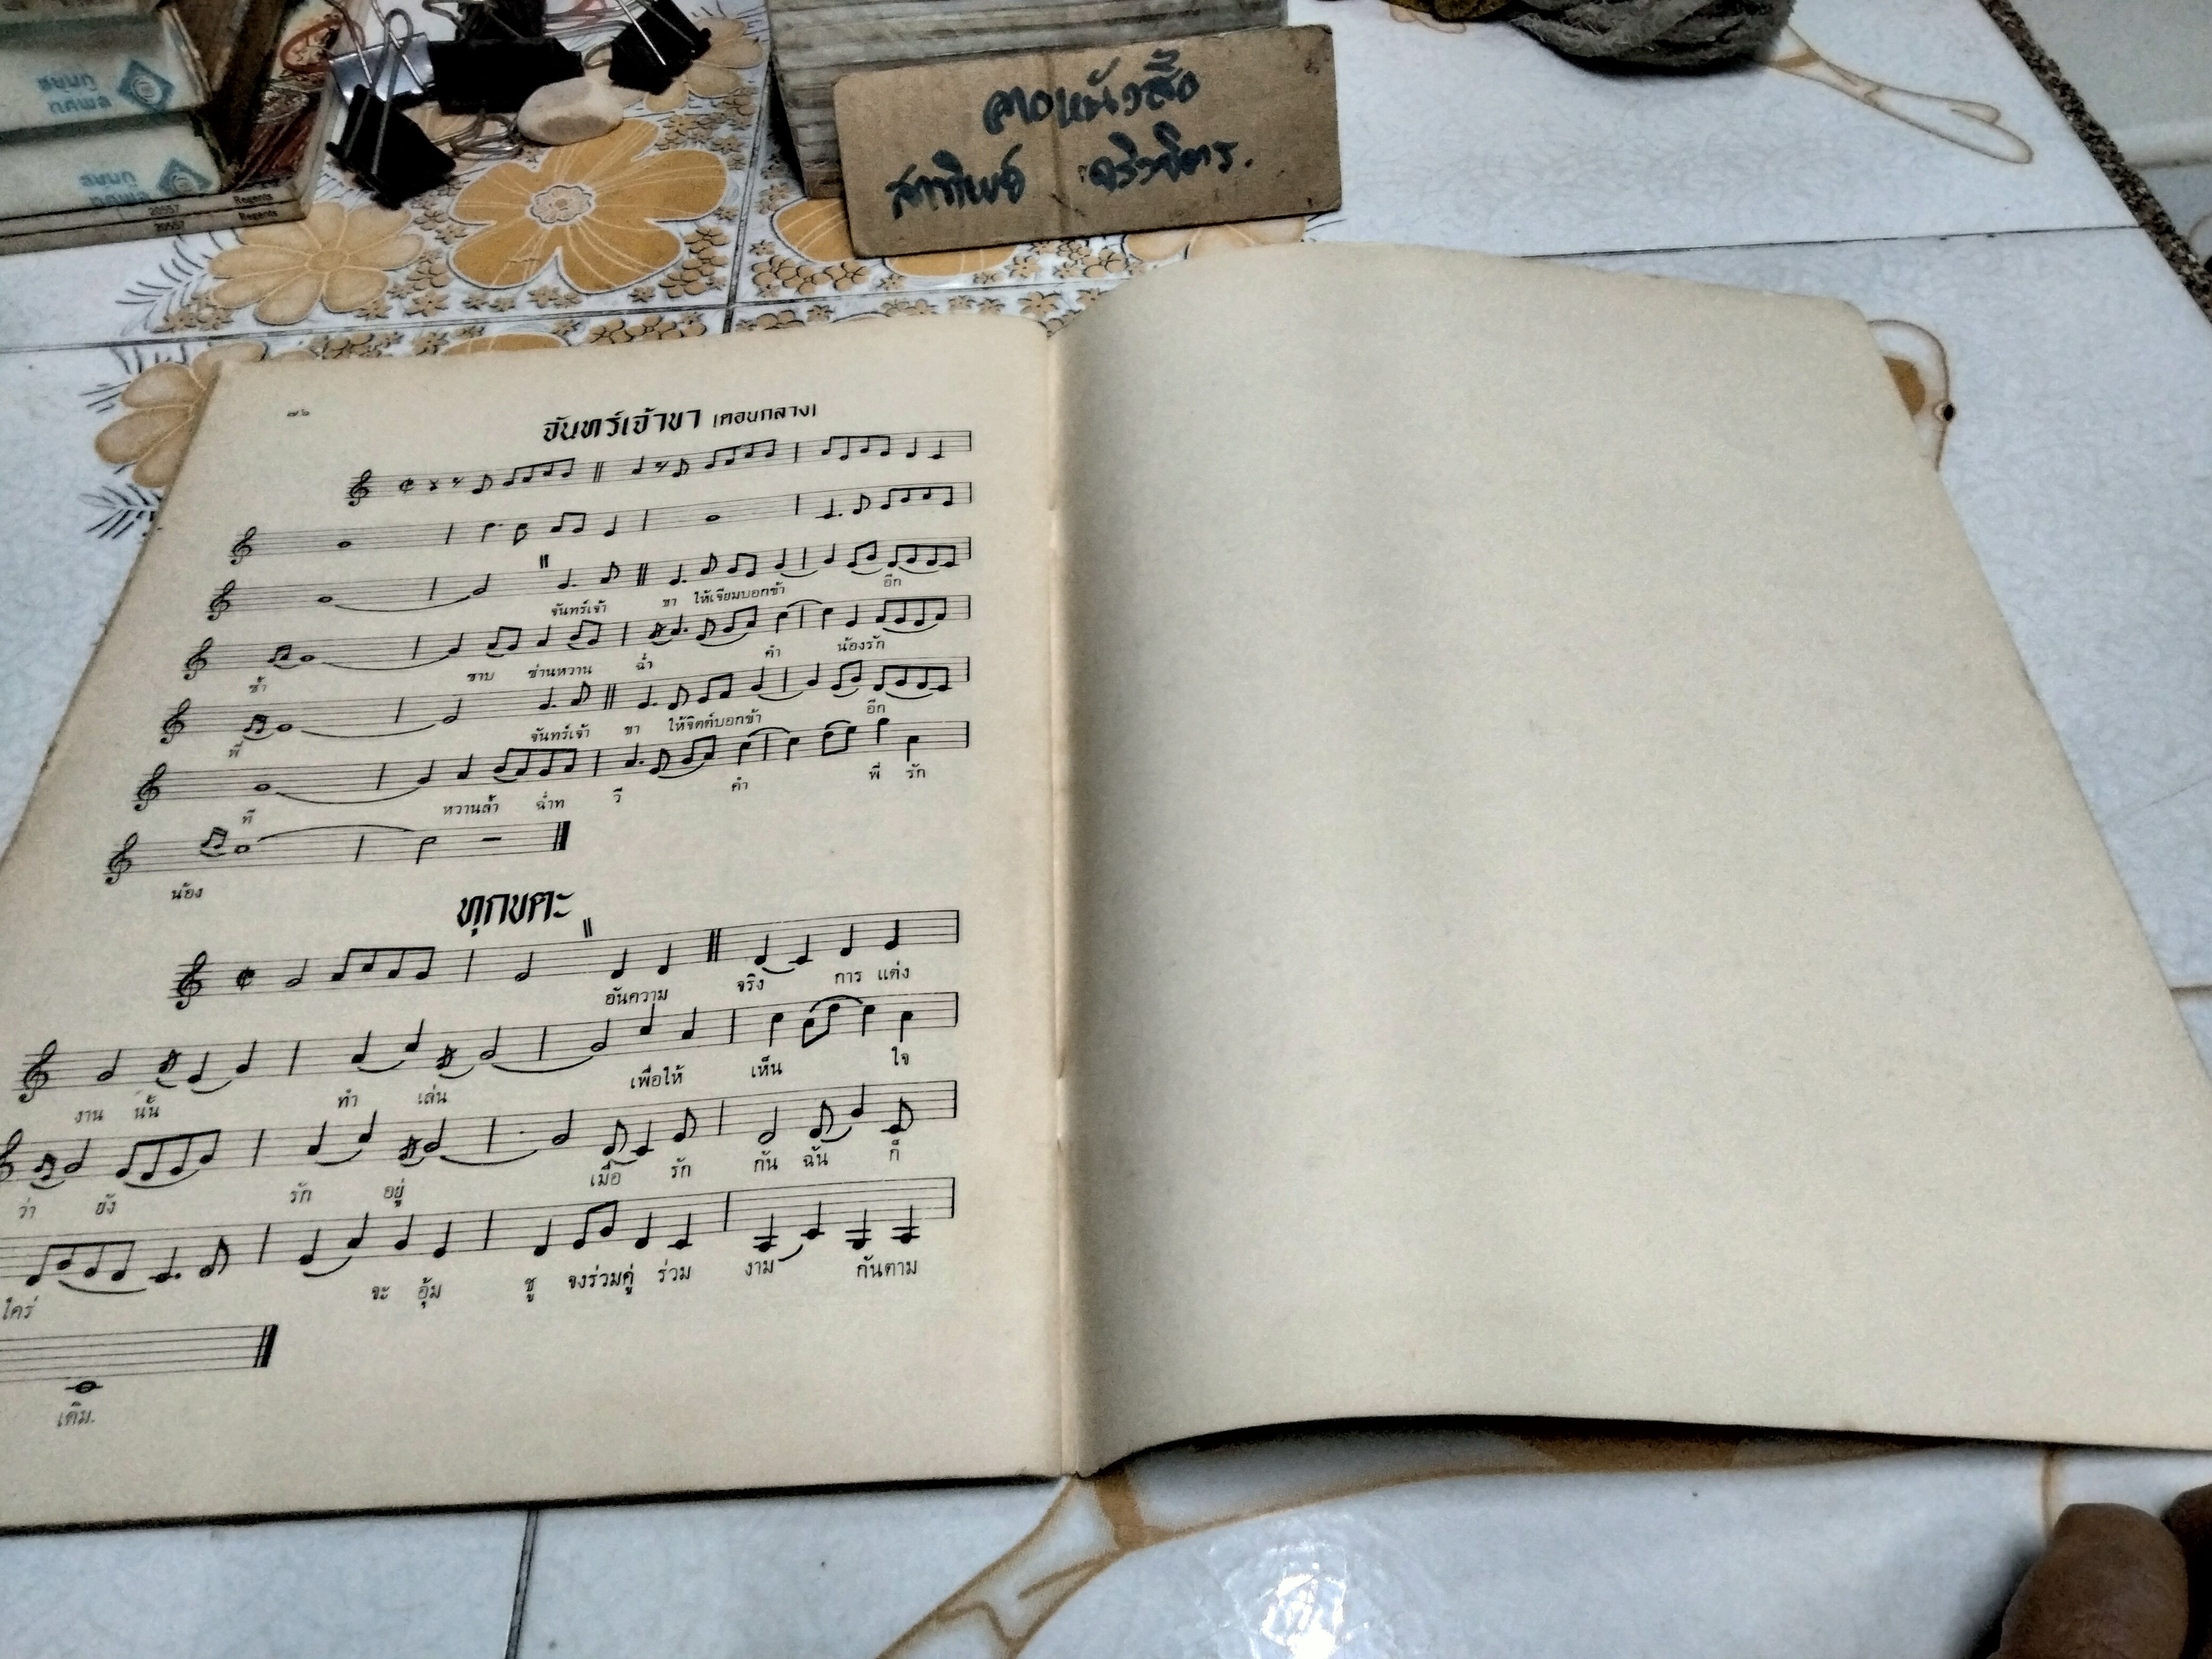 20557 Regents
20557 Regents
๗๖
จันทร์เจ้าขา (ตอนกลาง)
จันทร์เจ้า ขา ให้เจียมบอกข้า อีก
ช้ำ ซาบ ซ่านหวาน ฉ่ำ คำ น้องรัก
พี่ จันทร์เจ้า ขา ให้จิตต์บอกข้า อีก
ที หวานล้ำ ฉ่ำท วี คำ พี่ รัก
น้อง
ทุกขตะ
อันความ จริง การ แต่ง
งาน นั้น ทำ เล่น เพื่อให้ เห็น ใจ
ว่า ยัง รัก อยู่ เมื่อ รัก กัน ฉัน ก็
ใคร่ จะ อุ้ม ชู จงร่วมคู่ ร่วม งาม กันตาม
เดิม.